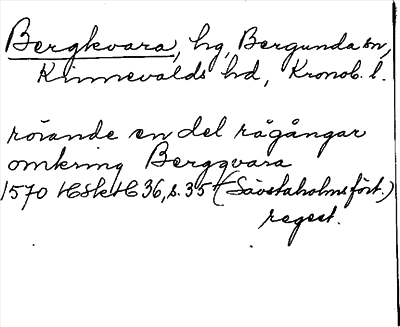 Bergkvara, hg, Bergunda sn,
Kinnevalds hd, Kronob. l.
rörande en del rågångar
omkring Bergqvara
1570 HSH 36, s. 35 (Säfstaholms fört.)
regest.